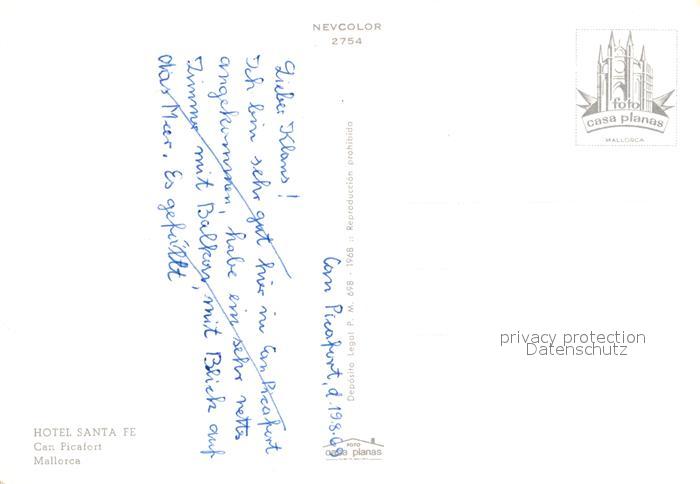 NEVCOLOR
2754
foto
casa planas
MALLORCA
Can Picafort, d. 19.8.69
Lieber Klaus!
Ich bin sehr gut hier in Can Picafort
angekommen, habe ein sehr nettes
Zimmer mit Balkon, mit Blick auf
das Meer. Es gefällt
Depósito Legal P. M. 698 - 1968 :: Reproducción prohibida
FOTO
casa planas
privacy protection
Datenschutz
HOTEL SANTA FE
Can Picafort
Mallorca